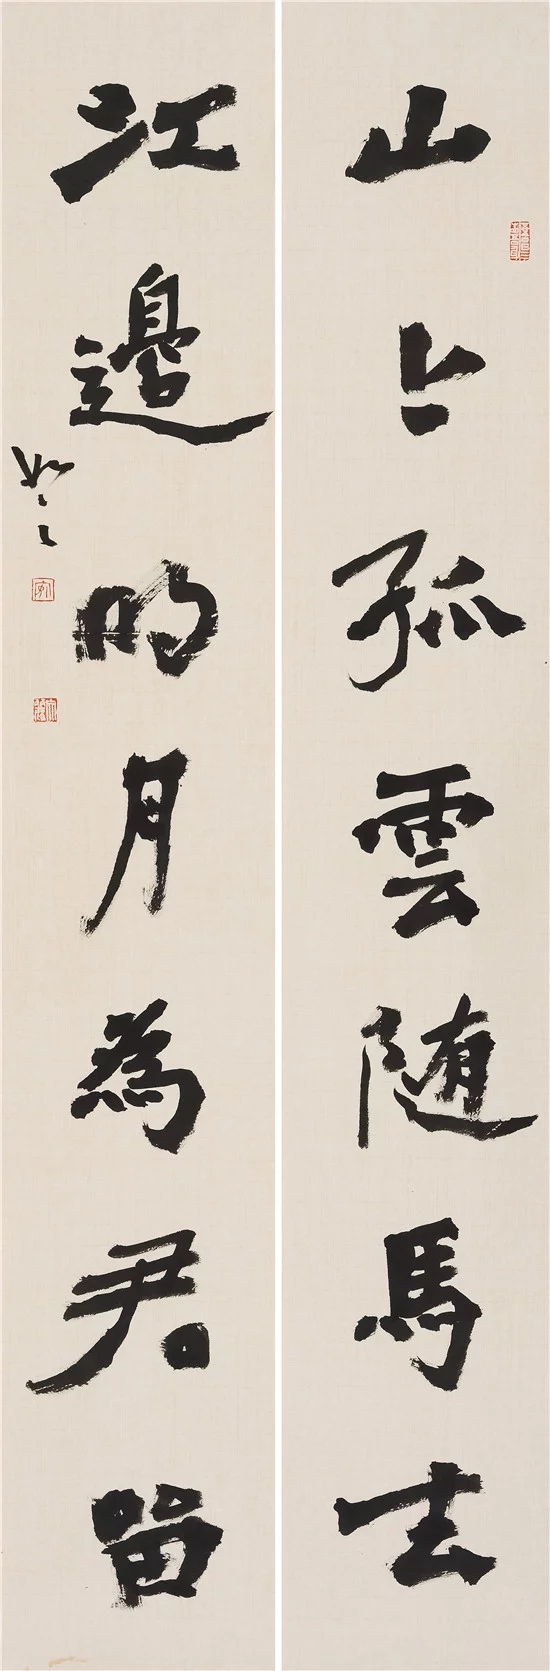 山上孤雲随馬去
江邊明月為君留